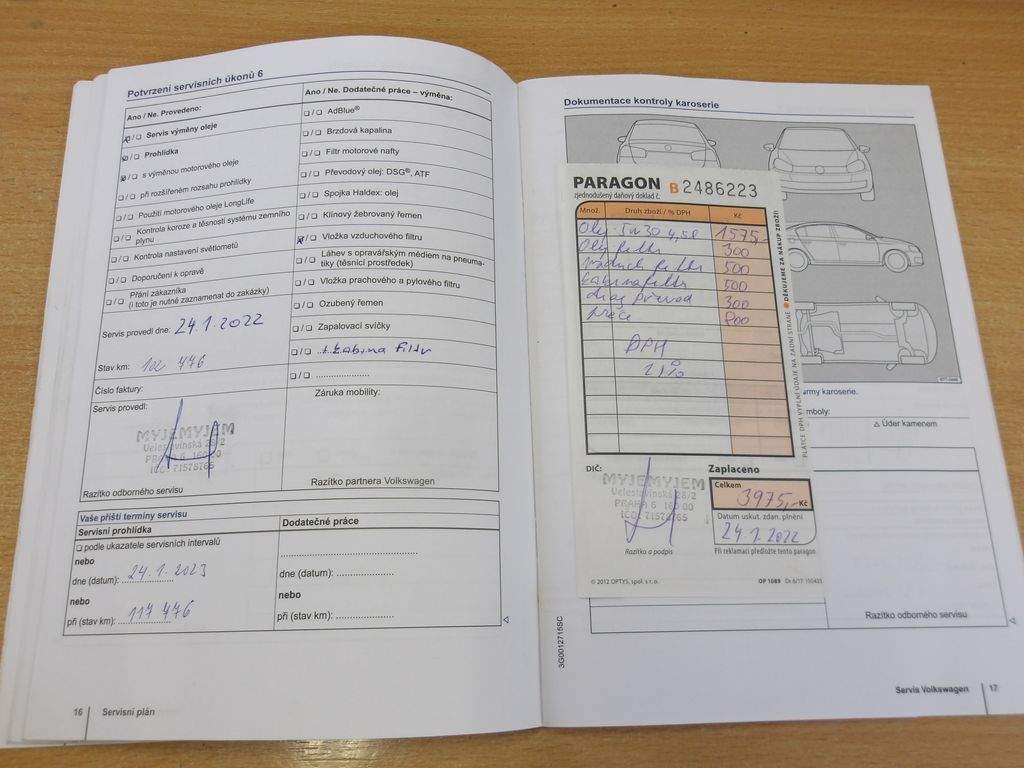 Potvrzení servisních úkonů 6
Ano / Ne. Provedeno:
Servis výměny oleje
Prohlídka
s výměnou motorového oleje
při rozšířeném rozsahu prohlídky
Použití motorového oleje LongLife
Kontrola koroze a těsnosti systému zemního
plynu
Kontrola nastavení světlometů
Doporučení k opravě
Přání zákazníka
(i toto je nutné zaznamenat do zakázky)
Servis provedl dne: 24.1.2022
Stav km: 102 476
Číslo faktury:
Servis provedl:
MYJEMYJEM
Veleslavínská 28/2
PRAHA 6 160 00
IČO: 71578765
Razítko odborného servisu
Ano / Ne. Dodatečné práce – výměna:
AdBlue®
Brzdová kapalina
Filtr motorové nafty
Převodový olej: DSG®, ATF
Spojka Haldex: olej
Klínový žebrovaný řemen
Vložka vzduchového filtru
Láhev s opravářským médiem na pneuma-
tiky (těsnící prostředek)
Vložka prachového a pylového filtru
Ozubený řemen
Zapalovací svíčky
+ kabina filtr
Záruka mobility:
Razítko partnera Volkswagen
Vaše příští termíny servisu
Servisní prohlídka
podle ukazatele servisních intervalů
nebo
dne (datum): 24.1.2023
nebo
při (stav km): 117 476
Dodatečné práce
dne (datum):
nebo
při (stav km):
16 Servisní plán
Dokumentace kontroly karoserie
PARAGON B 2486223
zjednodušený daňový doklad č.
Množ. Druh zboží / % DPH Kč
Olej 5W30 4,5l 1575,-
Olej filtr 300
vzduch filtr 500
kabina filtr 500
diag převod 300
práce 800
DPH
21%
DĚKUJEME ZA NÁKUP ZBOŽÍ!
PLÁTCE DPH VYPLNÍ ÚDAJE NA ZADNÍ STRANĚ
DIČ:
MYJEMYJEM
Veleslavínská 28/2
PRAHA 6 160 00
IČO: 71578765
Razítko a podpis
Zaplaceno
Celkem
3975,- Kč
Datum uskut. zdan. plnění
24.1.2022
Při reklamaci předložte tento paragon
© 2012 OPTYS, spol. s r. o.
OP 1089
army karoserie.
mboly:
Úder kamenem
Razítko odborného servisu
3G0012715SC
Servis Volkswagen 17